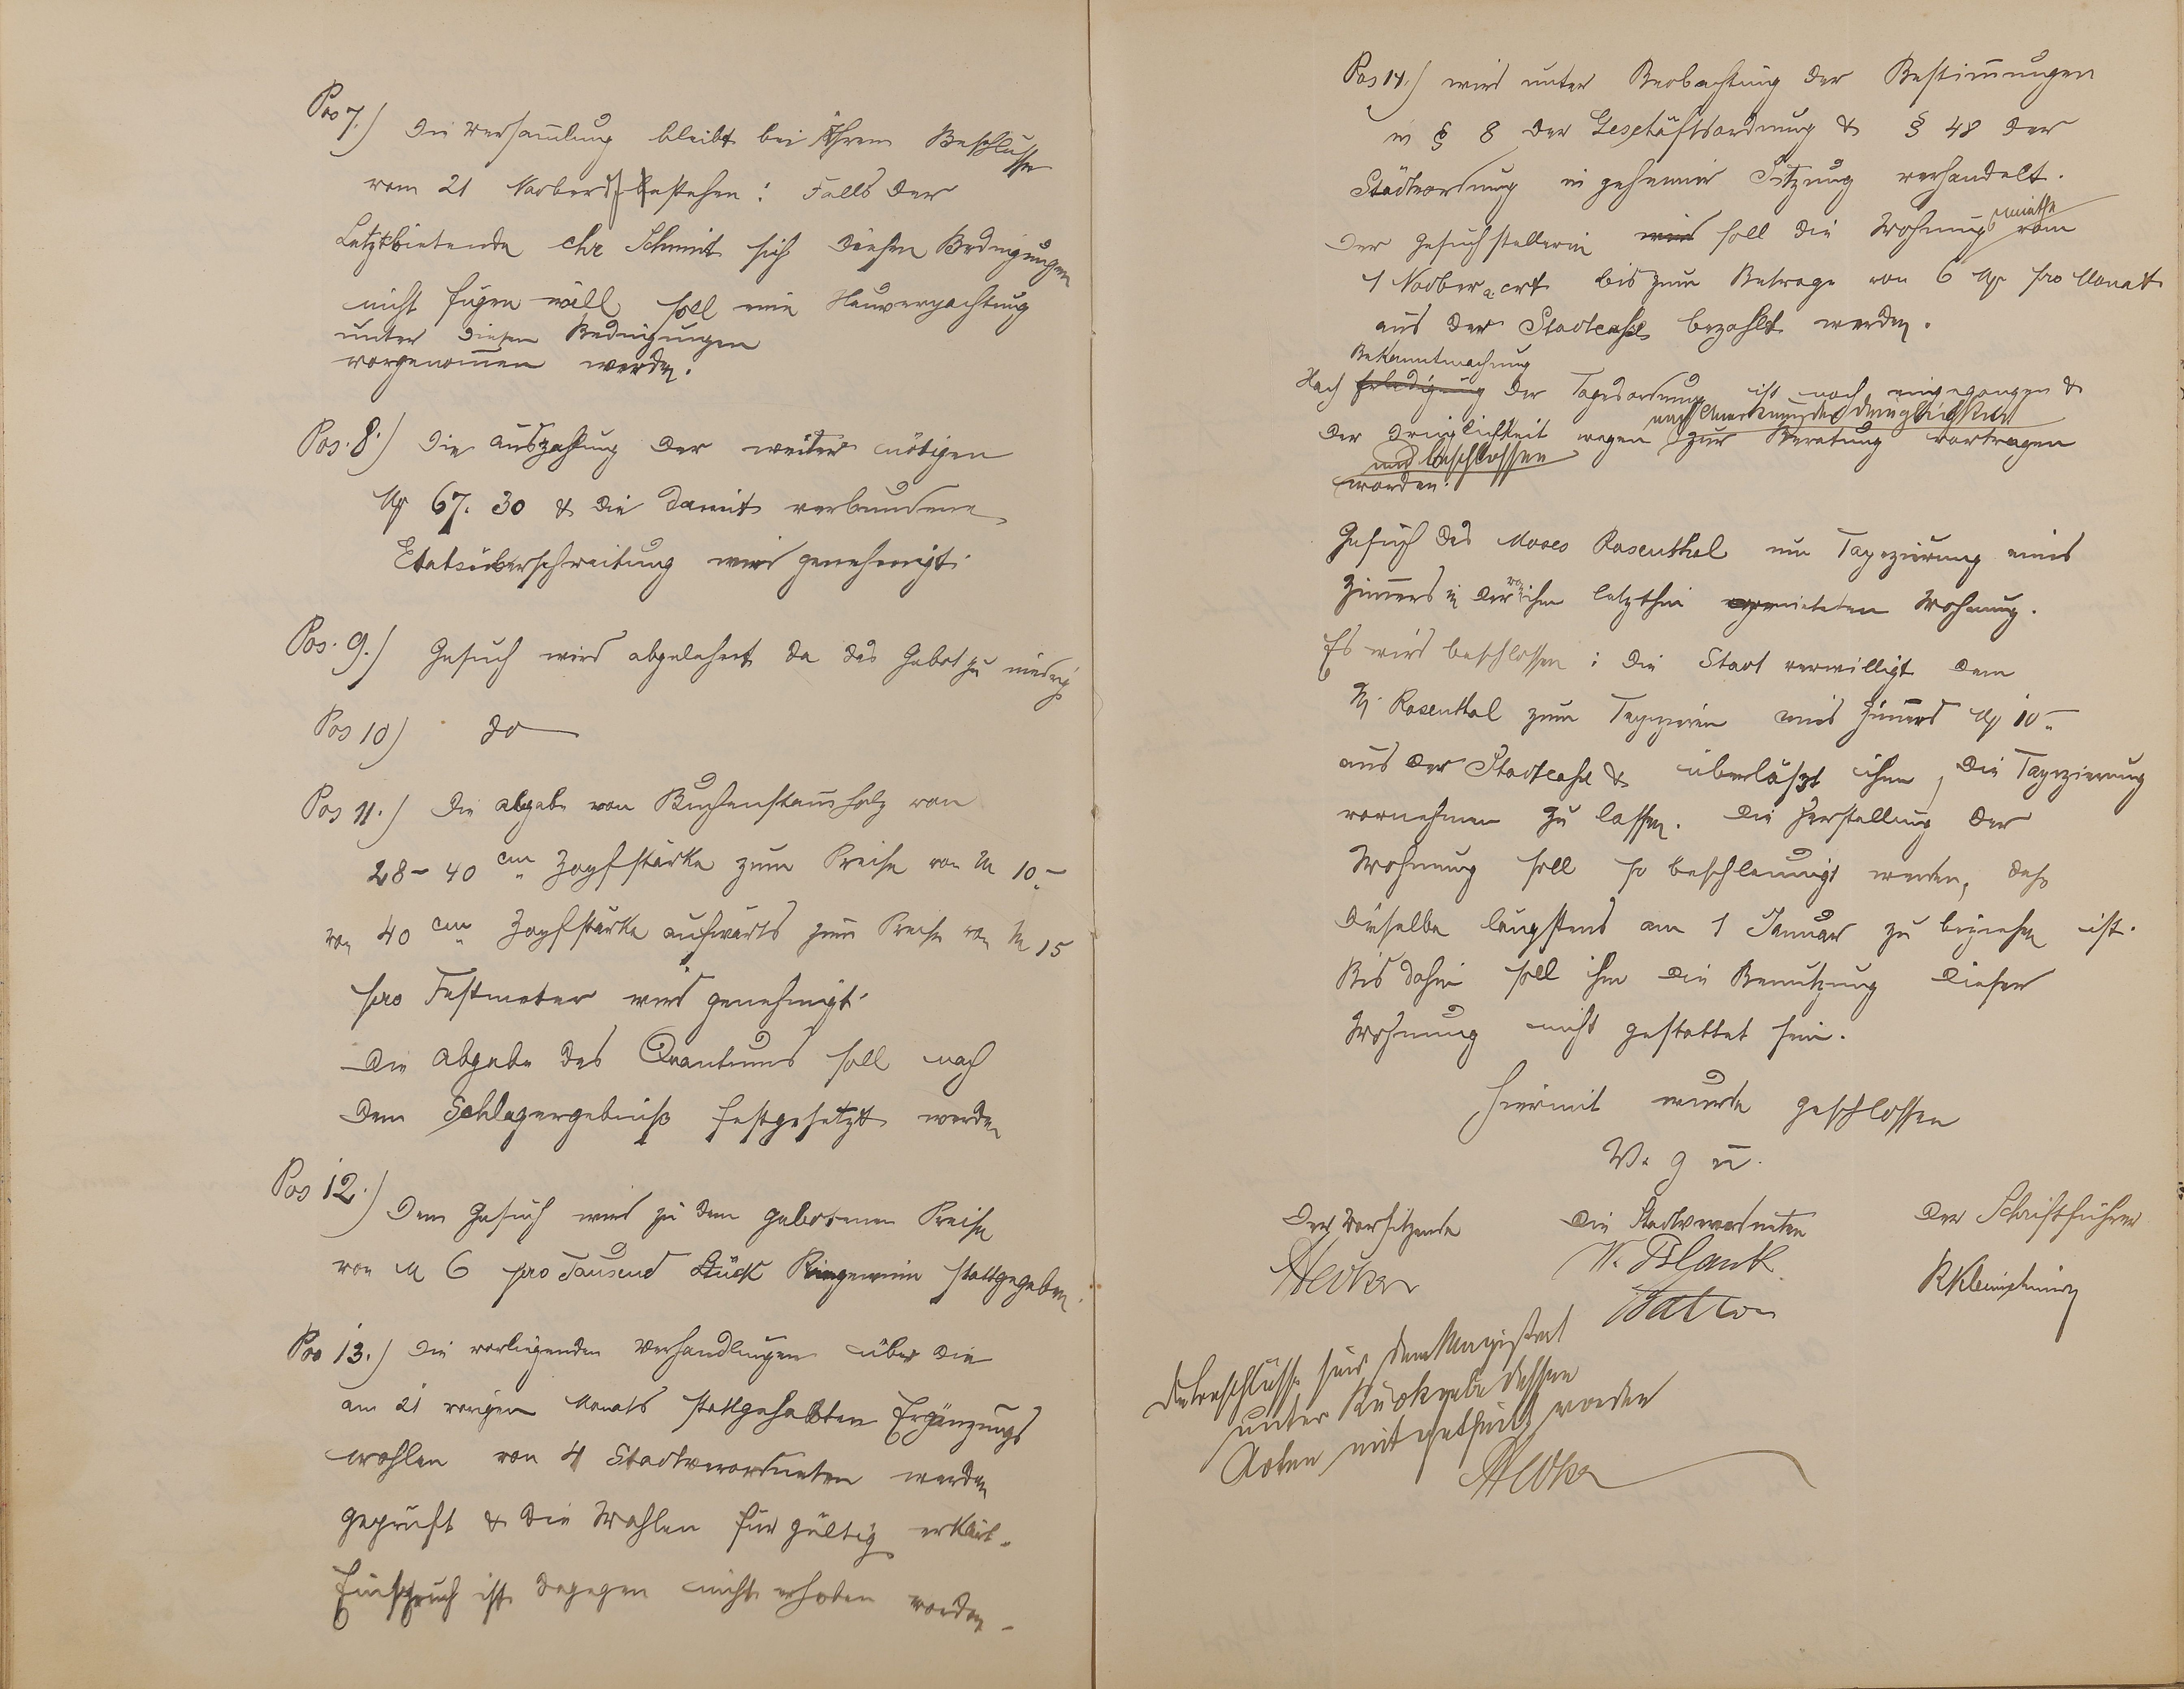 Pos 7.) Die Versam̄lung bleibt bei Ihrem Beschlusse
vom 21 Novber bestehen: Falls der
Letztbietende Chr Schmit sich diesen Bedingungen
nicht fügen will soll eine Neuverpachtung
unter diesen Bedingungen
vorgenom̄en werden.
Pos. 8.) Die Auszahlung der weiter nötigen
M 67. 30 & die damit verbundene
Etatsüberschreitung wird genehmigt.
Pos. 9.) Gesuch wird abgelehnt da das Gebot zu niedrig
Pos 10) do
Pos 11.) Die Abgabe von Buchenstam̄holz von
28 - 40 cm Zopfstärke zum Preise von M 10 -
von 40 cm Zopfstärke aufwärts zum Preise von M 15
pro Festmeter wird genehmigt.
Die Abgabe des Quantums soll nach
dem Schlagergebniß festgesetzt werden
Pos 12.) Dem Gesuch wird zu dem gebotenen Preise
von M 6 pro Tausend Stück stattgegeben.
Pos 13.) Die vorliegenden Verhandlungen über die
am 21 vorigen Monats stattgehabten Ergänzungs
wahlen von 4 Stadtverordneten werden
geprüft & die Wahlen für gültig erklärt.
Einspruch ist dagegen nicht erhoben worden.
Pos 14.) wird unter Beobachtung der Bestim̄ungen
in § 8 der Geschäftsordnung & § 48 der
Städteordnung in geheimer Sitzung verhandelt.
Der Gesuchstellerin wird soll die Wohnungsmiethe vom
1 Novber a crt bis zum Betrage von 6 M pro Monat
aus der Stadtcasse bezahlt werden.
Bekanntmachung
Nach Erledigung der Tagesordnung ist noch eingegangen &
nach Anerkennung der Dringlichkeit
der Dringlichkeit wegen zur Beratung vortragen
und beschlossen
worden:
Gesuch des Moses Rosenthal um Tapezierung eines
Zim̄ers in der von ihm letzthin gemieteten Wohnung.
Es wird beschlossen: Die Stadt verwilligt dem
M. Rosenthal zum Tapezieren eines Zim̄ers M 10 -
aus der Stadtcasse & überläßt ihm, die Tapezierung
vornehmen zu lassen. Die Herstellung der
Wohnung soll so beschleunigt werden, daß
dieselbe längstens am 1 Januar zu beziehen ist.
Bis dahin soll ihm die Benutzung dieser
Wohnung nicht gestattet sein.
Hiermit wurde geschlossen
V. g u.
Der Vorsitzende Die Stadtverordneten Der Schriftführer
W. Blank
Die Beschlüsse sind dem Magistrat
unter Rückgabe dessen
Acten mitgetheilt worden